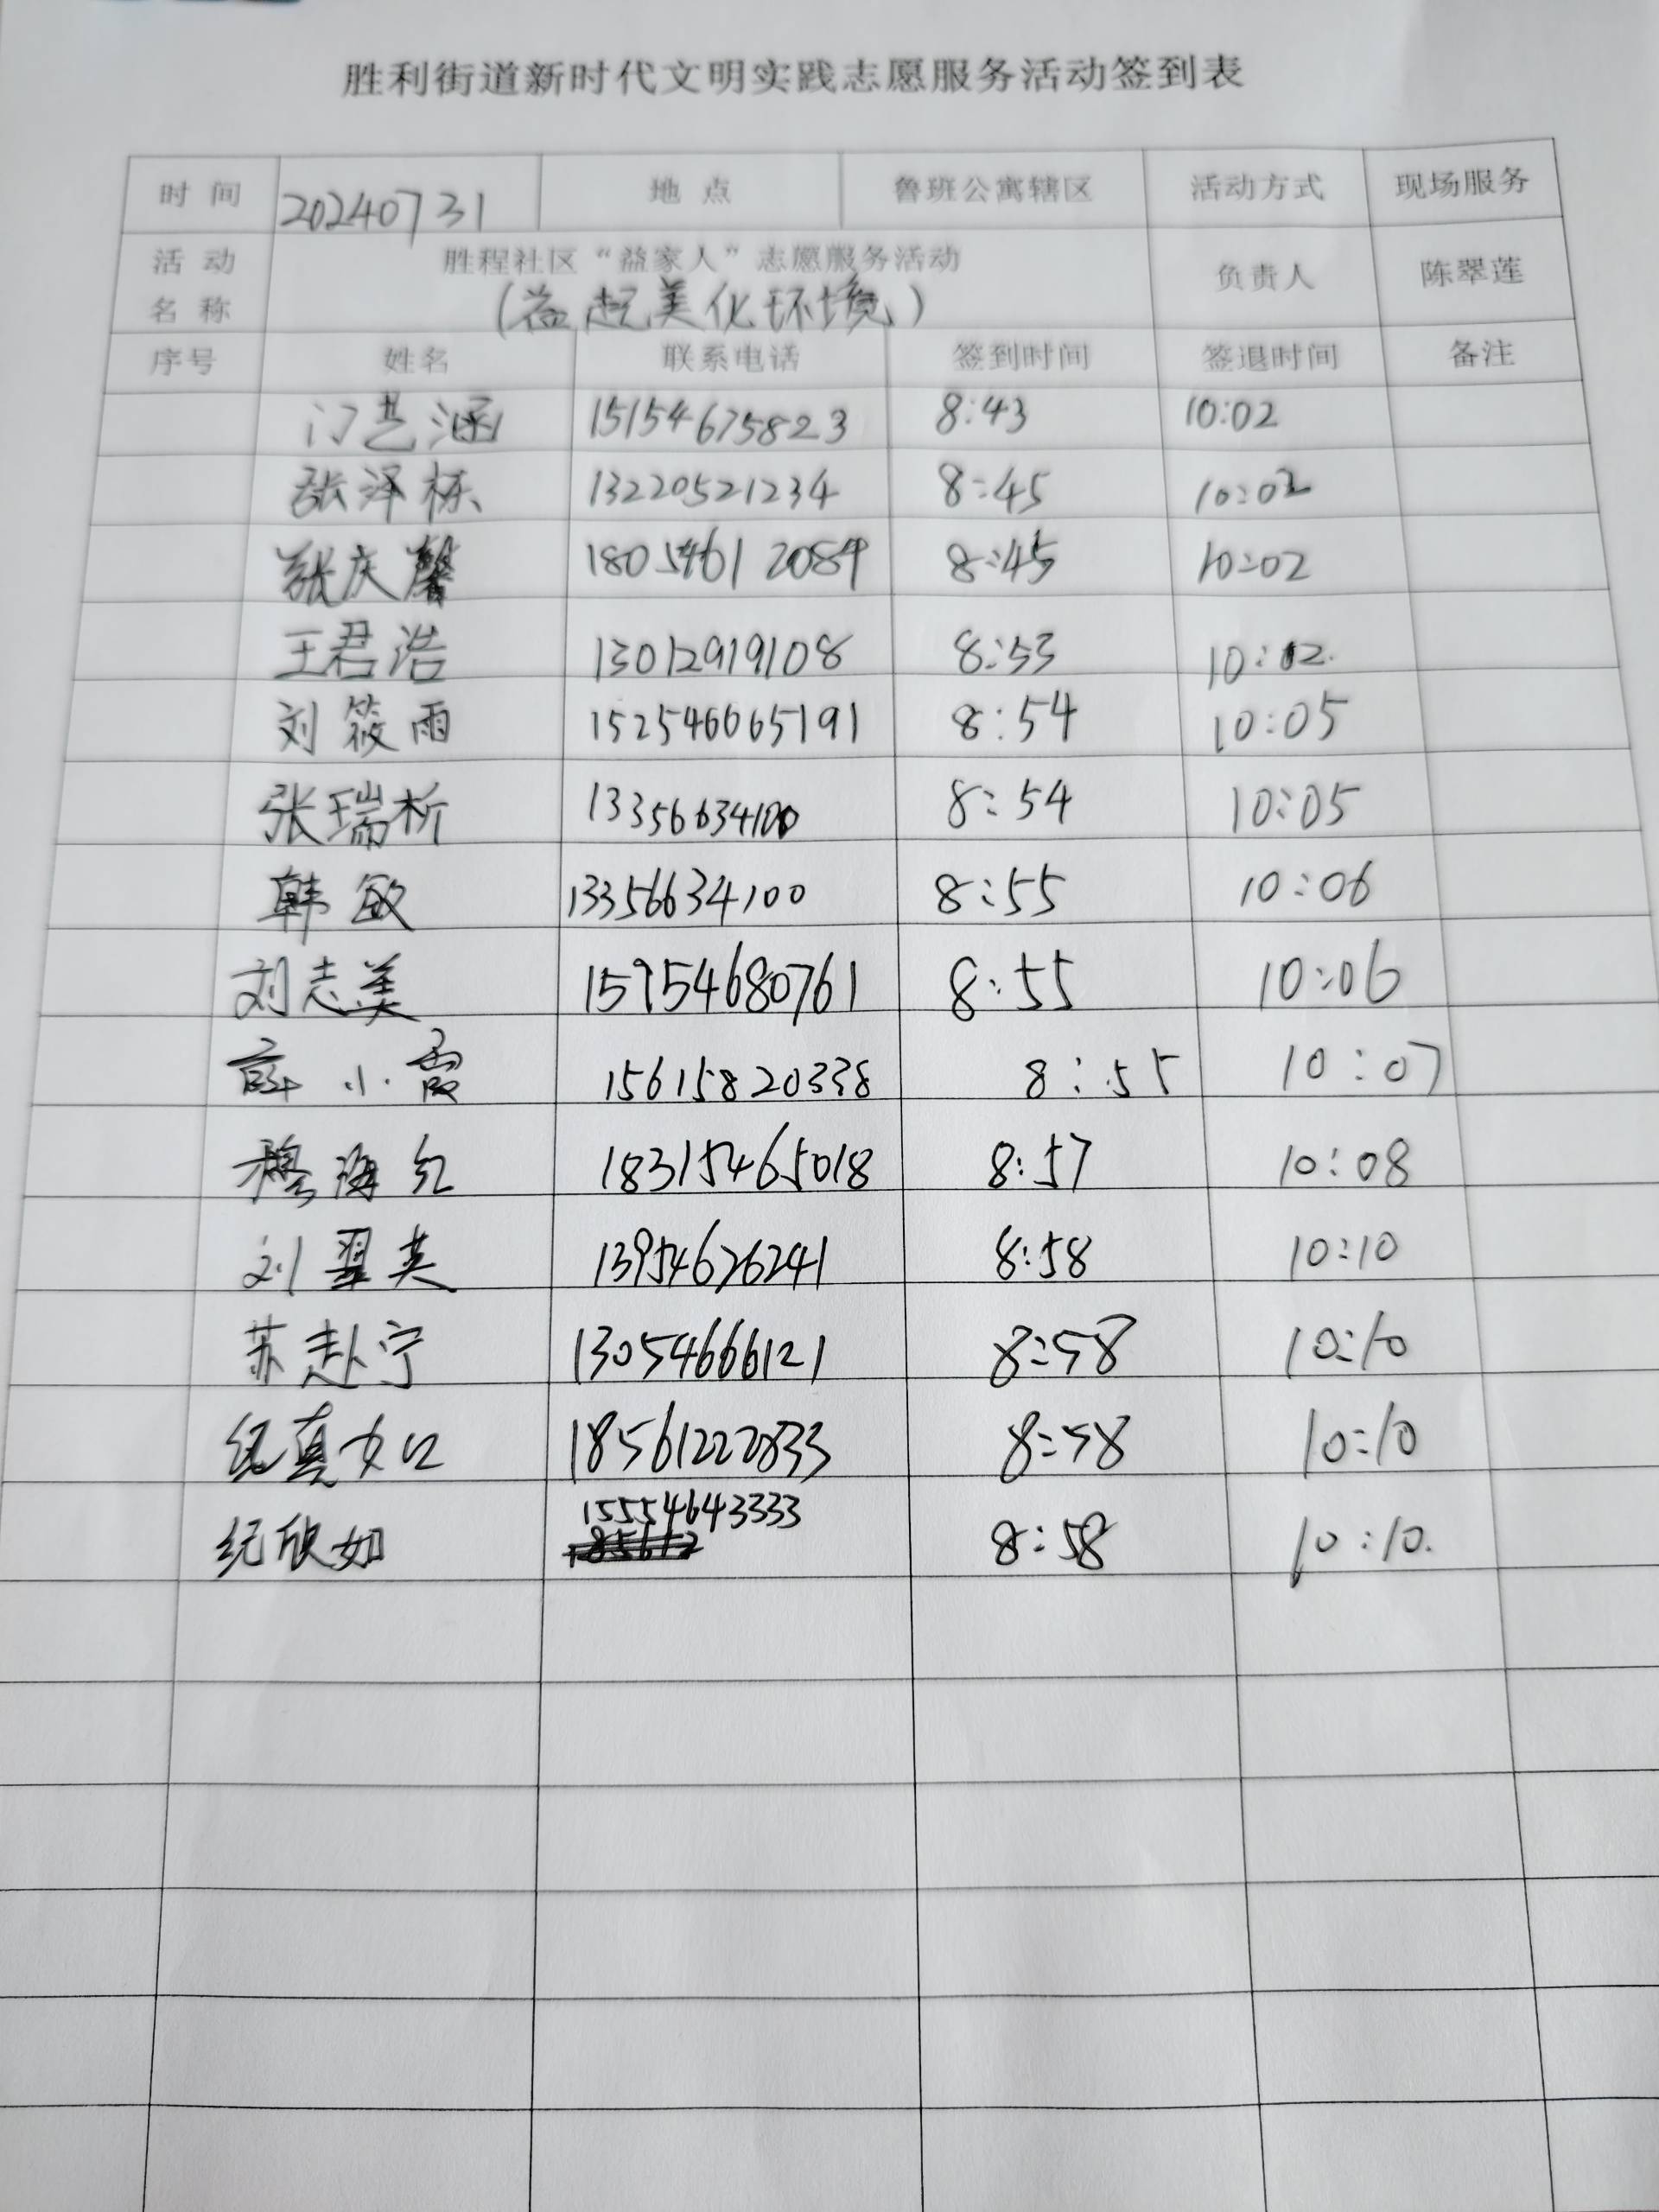 胜利街道新时代文明实践志愿服务活动签到表
时 间 20240731 地 点 鲁班公寓辖区 活动方式 现场服务
活 动 名 称 胜程社区“益家人”志愿服务活动 负责人 陈翠莲
(益起美化环境)
序号 姓名 联系电话 签到时间 签退时间 备注
门艺涵 15154675823 8:43 10:02
张泽栋 13220521234 8:45 10:02
张庆馨 18054612084 8:45 10:02
王君浩 13012919108 8:53 10:02.
刘筱雨 152546065191 8:54 10:05
张瑞析 13356634100 8:54 10:05
韩敏 13356634100 8:55 10:06
刘志美 15954680761 8:55 10:06
薛小霞 15615820338 8:55 10:07
穆海红 18315465018 8:57 10:08
刘翠英 13954626241 8:58 10:10
苏赴宁 13054666121 8:58 10:10
纪真如 18561222833 8:58 10:10
纪欣如 15554643333 8:58 10:10.